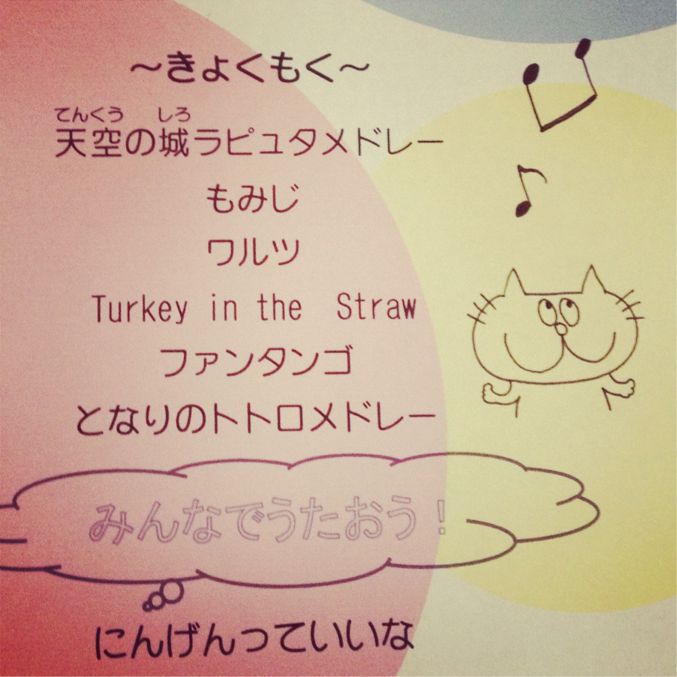 ～きょくもく～
てんくう しろ
天空の城ラピュタメドレー
もみじ
ワルツ
Turkey in the Straw
ファンタンゴ
となりのトトロメドレー
みんなでうたおう！
にんげんっていいな